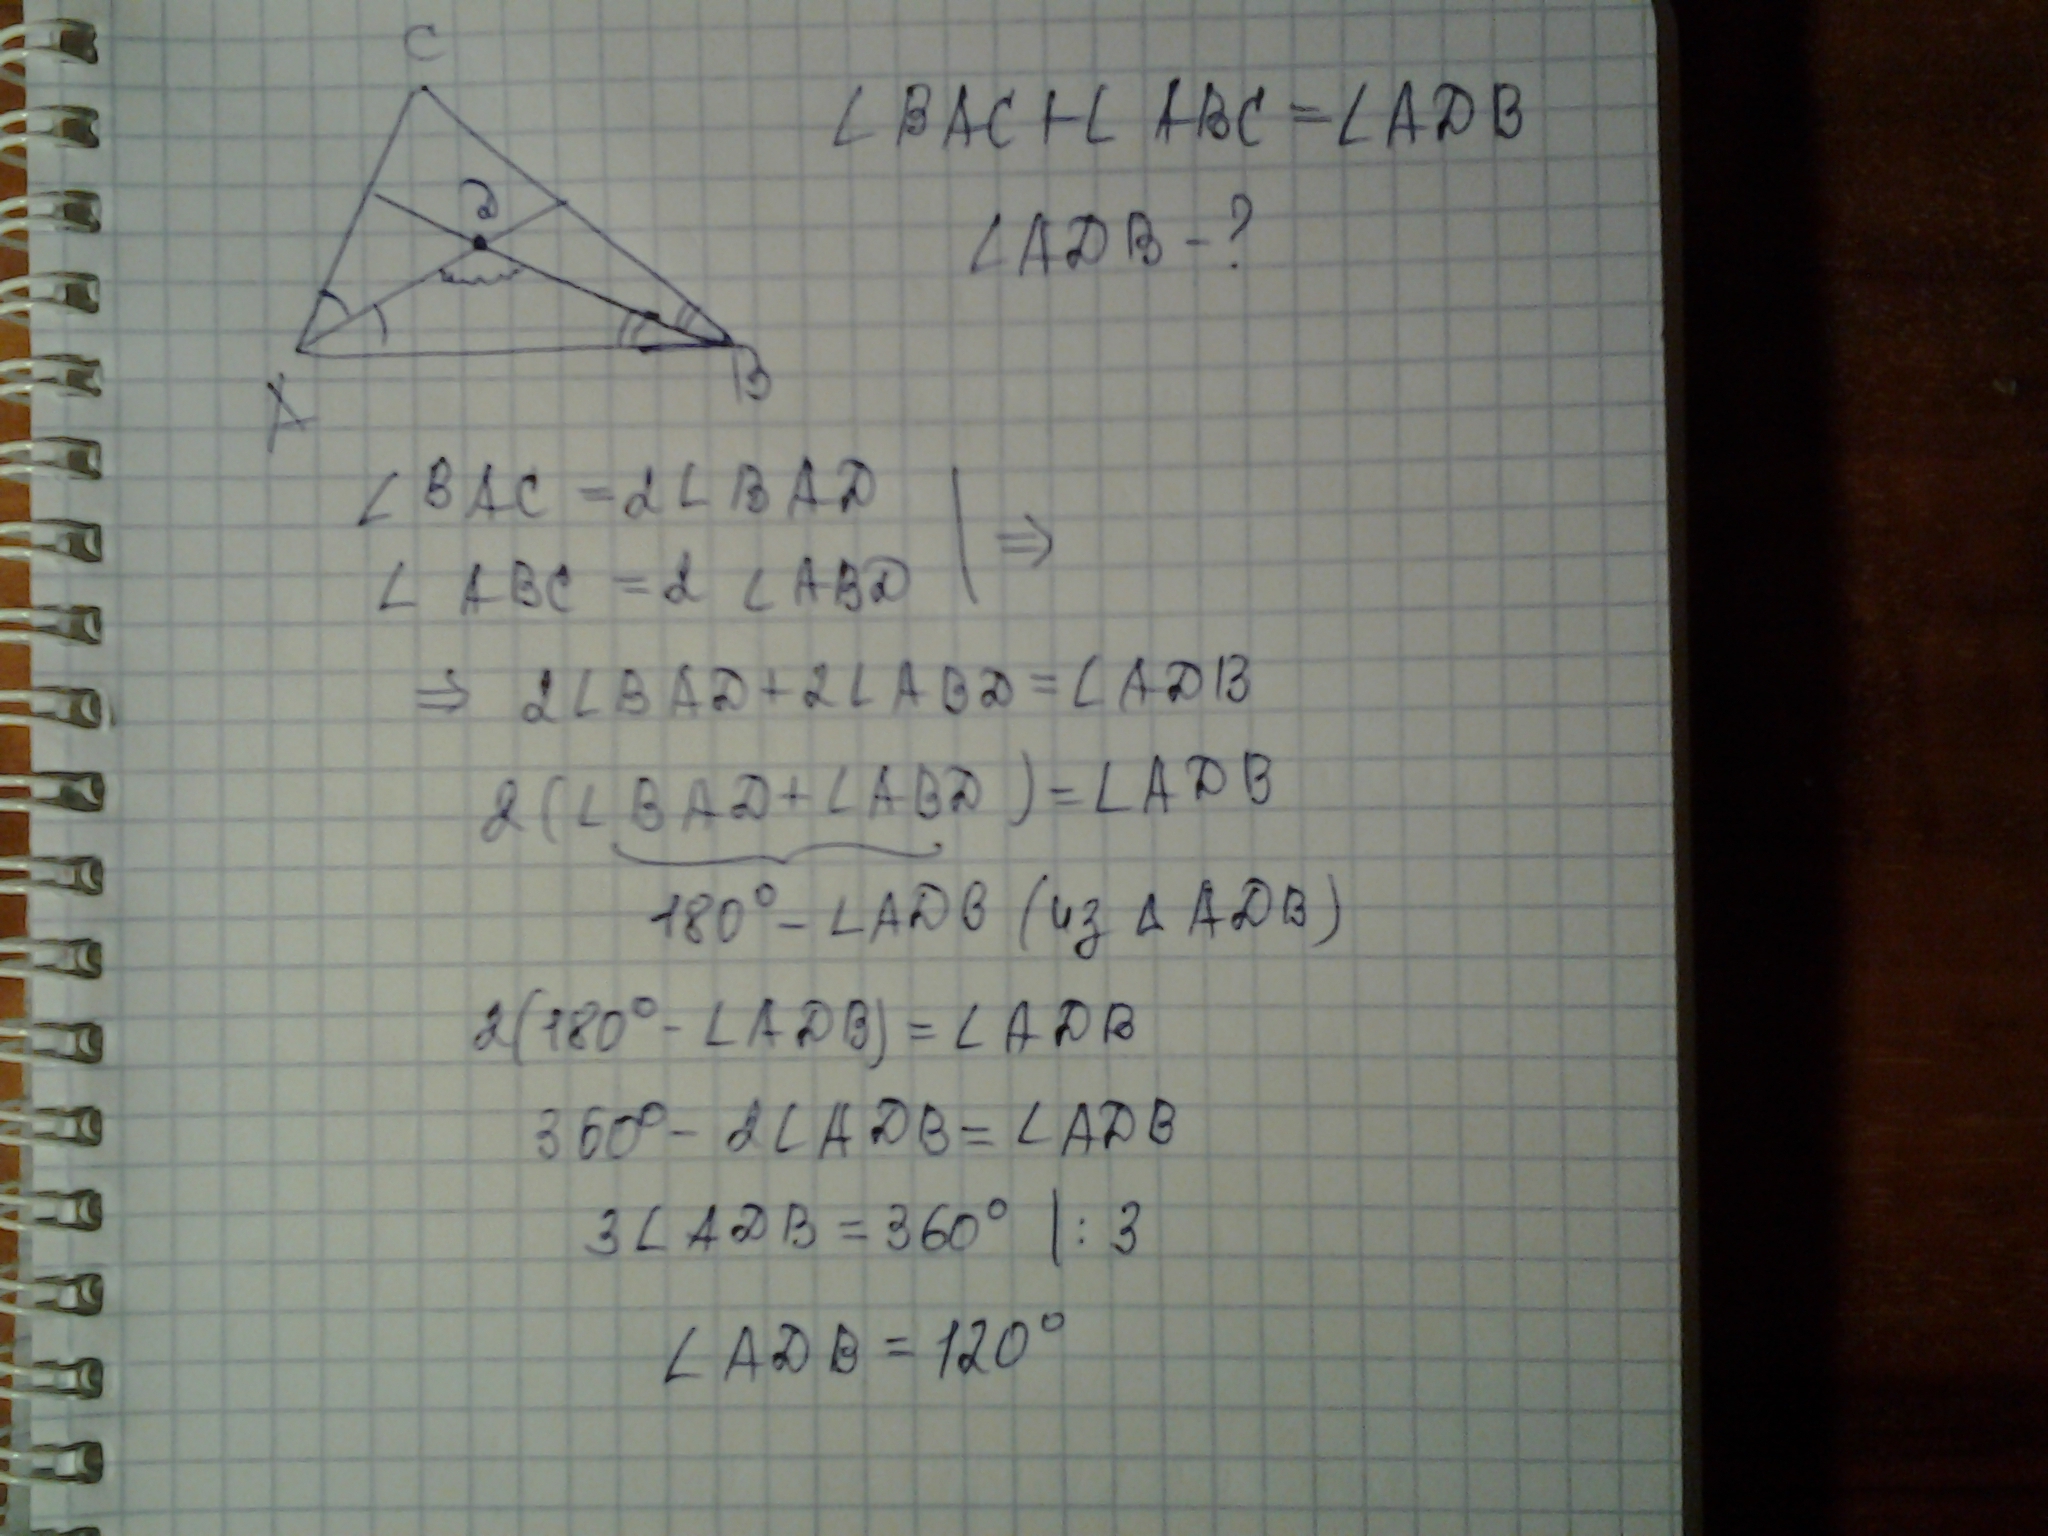 C
∠BAC+∠ABC=∠ADB
D
∠ADB-?
A
B
∠BAC=2∠BAD
∠ABC=2∠ABD | ⇒
⇒ 2∠BAD+2∠ABD=∠ADB
2(∠BAD+∠ABD)=∠ADB
180°-∠ADB (из △ADB)
2(180°-∠ADB)=∠ADB
360°-2∠ADB=∠ADB
3∠ADB=360° |:3
∠ADB=120°